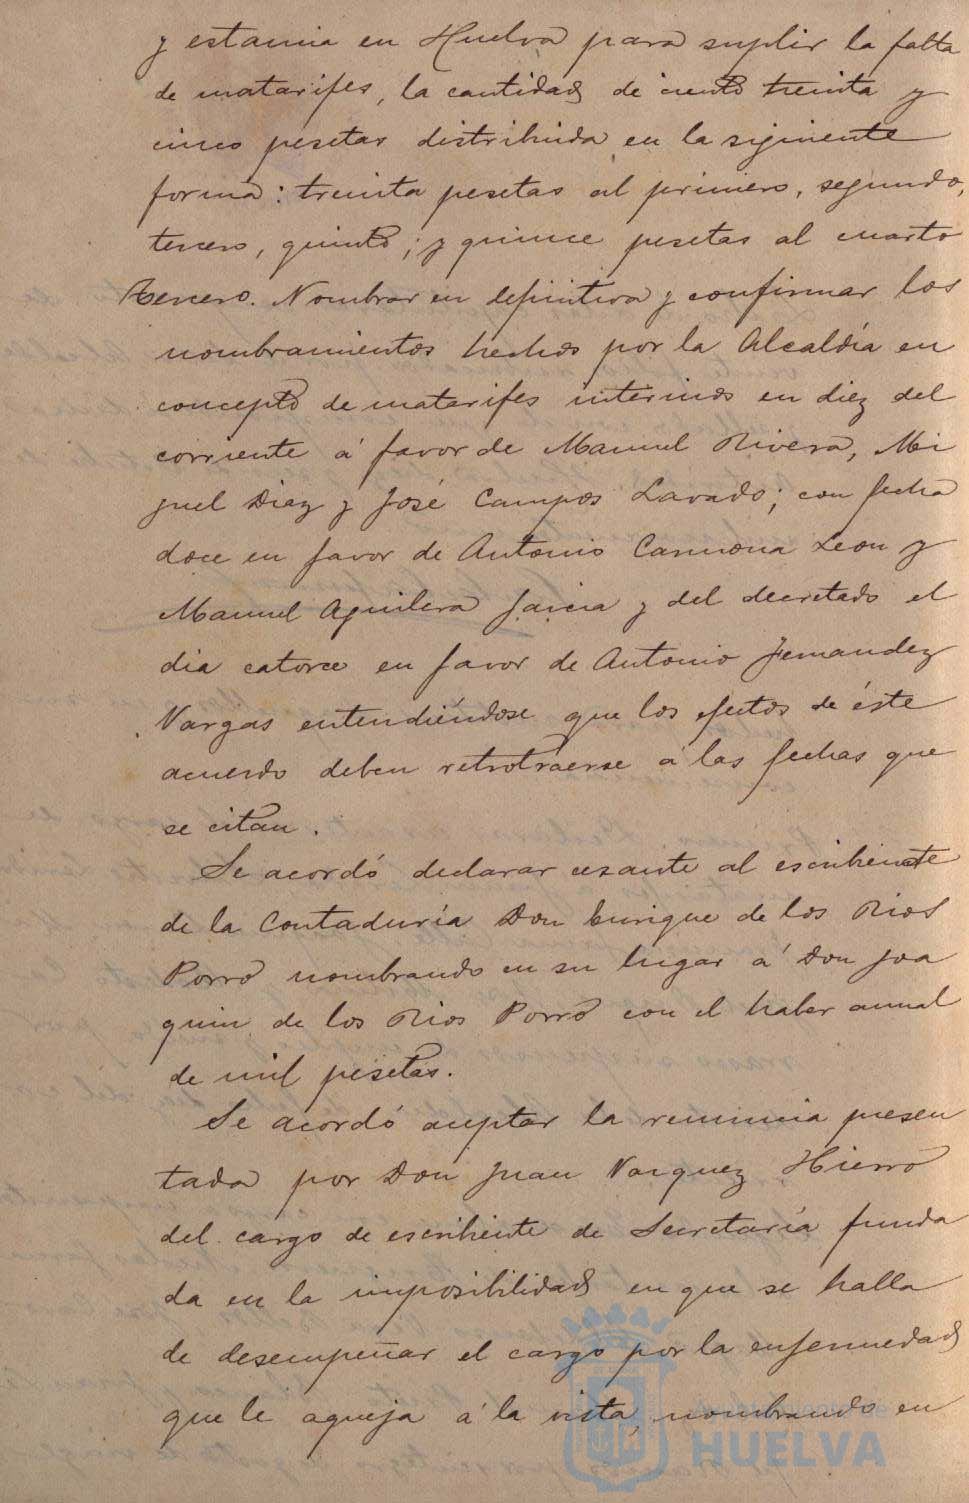 y estancia en Huelva para suplir la falta
de matarifes, la cantidad de ciento treinta y
cinco pesetas distribuida en la siguiente
forma: treinta pesetas al primero, segundo,
tercero, quinto; y quince pesetas al cuarto
tercero. Nombrar en definitiva y confirmar los
nombramientos hechos por la Alcaldía en
concepto de matarifes interinos en diez del
corriente á favor de Manuel Rivera, Mi
guel Diaz y José Campos Lavado; con fecha
doce en favor de Antonio Carmona Leon y
Manuel Aguilera Garcia y del decretado el
dia catorce en favor de Antonio Fernandez
Vargas entendiéndose que los efectos de éste
acuerdo deben retrotraerse á las fechas que
se citan.
Se acordó declarar cesante al escribiente
de la Contaduría Don Enrique de los Rios
Porro nombrando en su lugar á Don Joa
quin de los Rios Porro con el haber anual
de mil pesetas.
Se acordó aceptar la renuncia presen
tada por Don Juan Vazquez Hierro
del cargo de escribiente de Secretaría funda
da en la imposibilidad en que se halla
de desempeñar el cargo por la enfermedad
que le aqueja á la vista, nombrando en
Ayuntamiento de
HUELVA